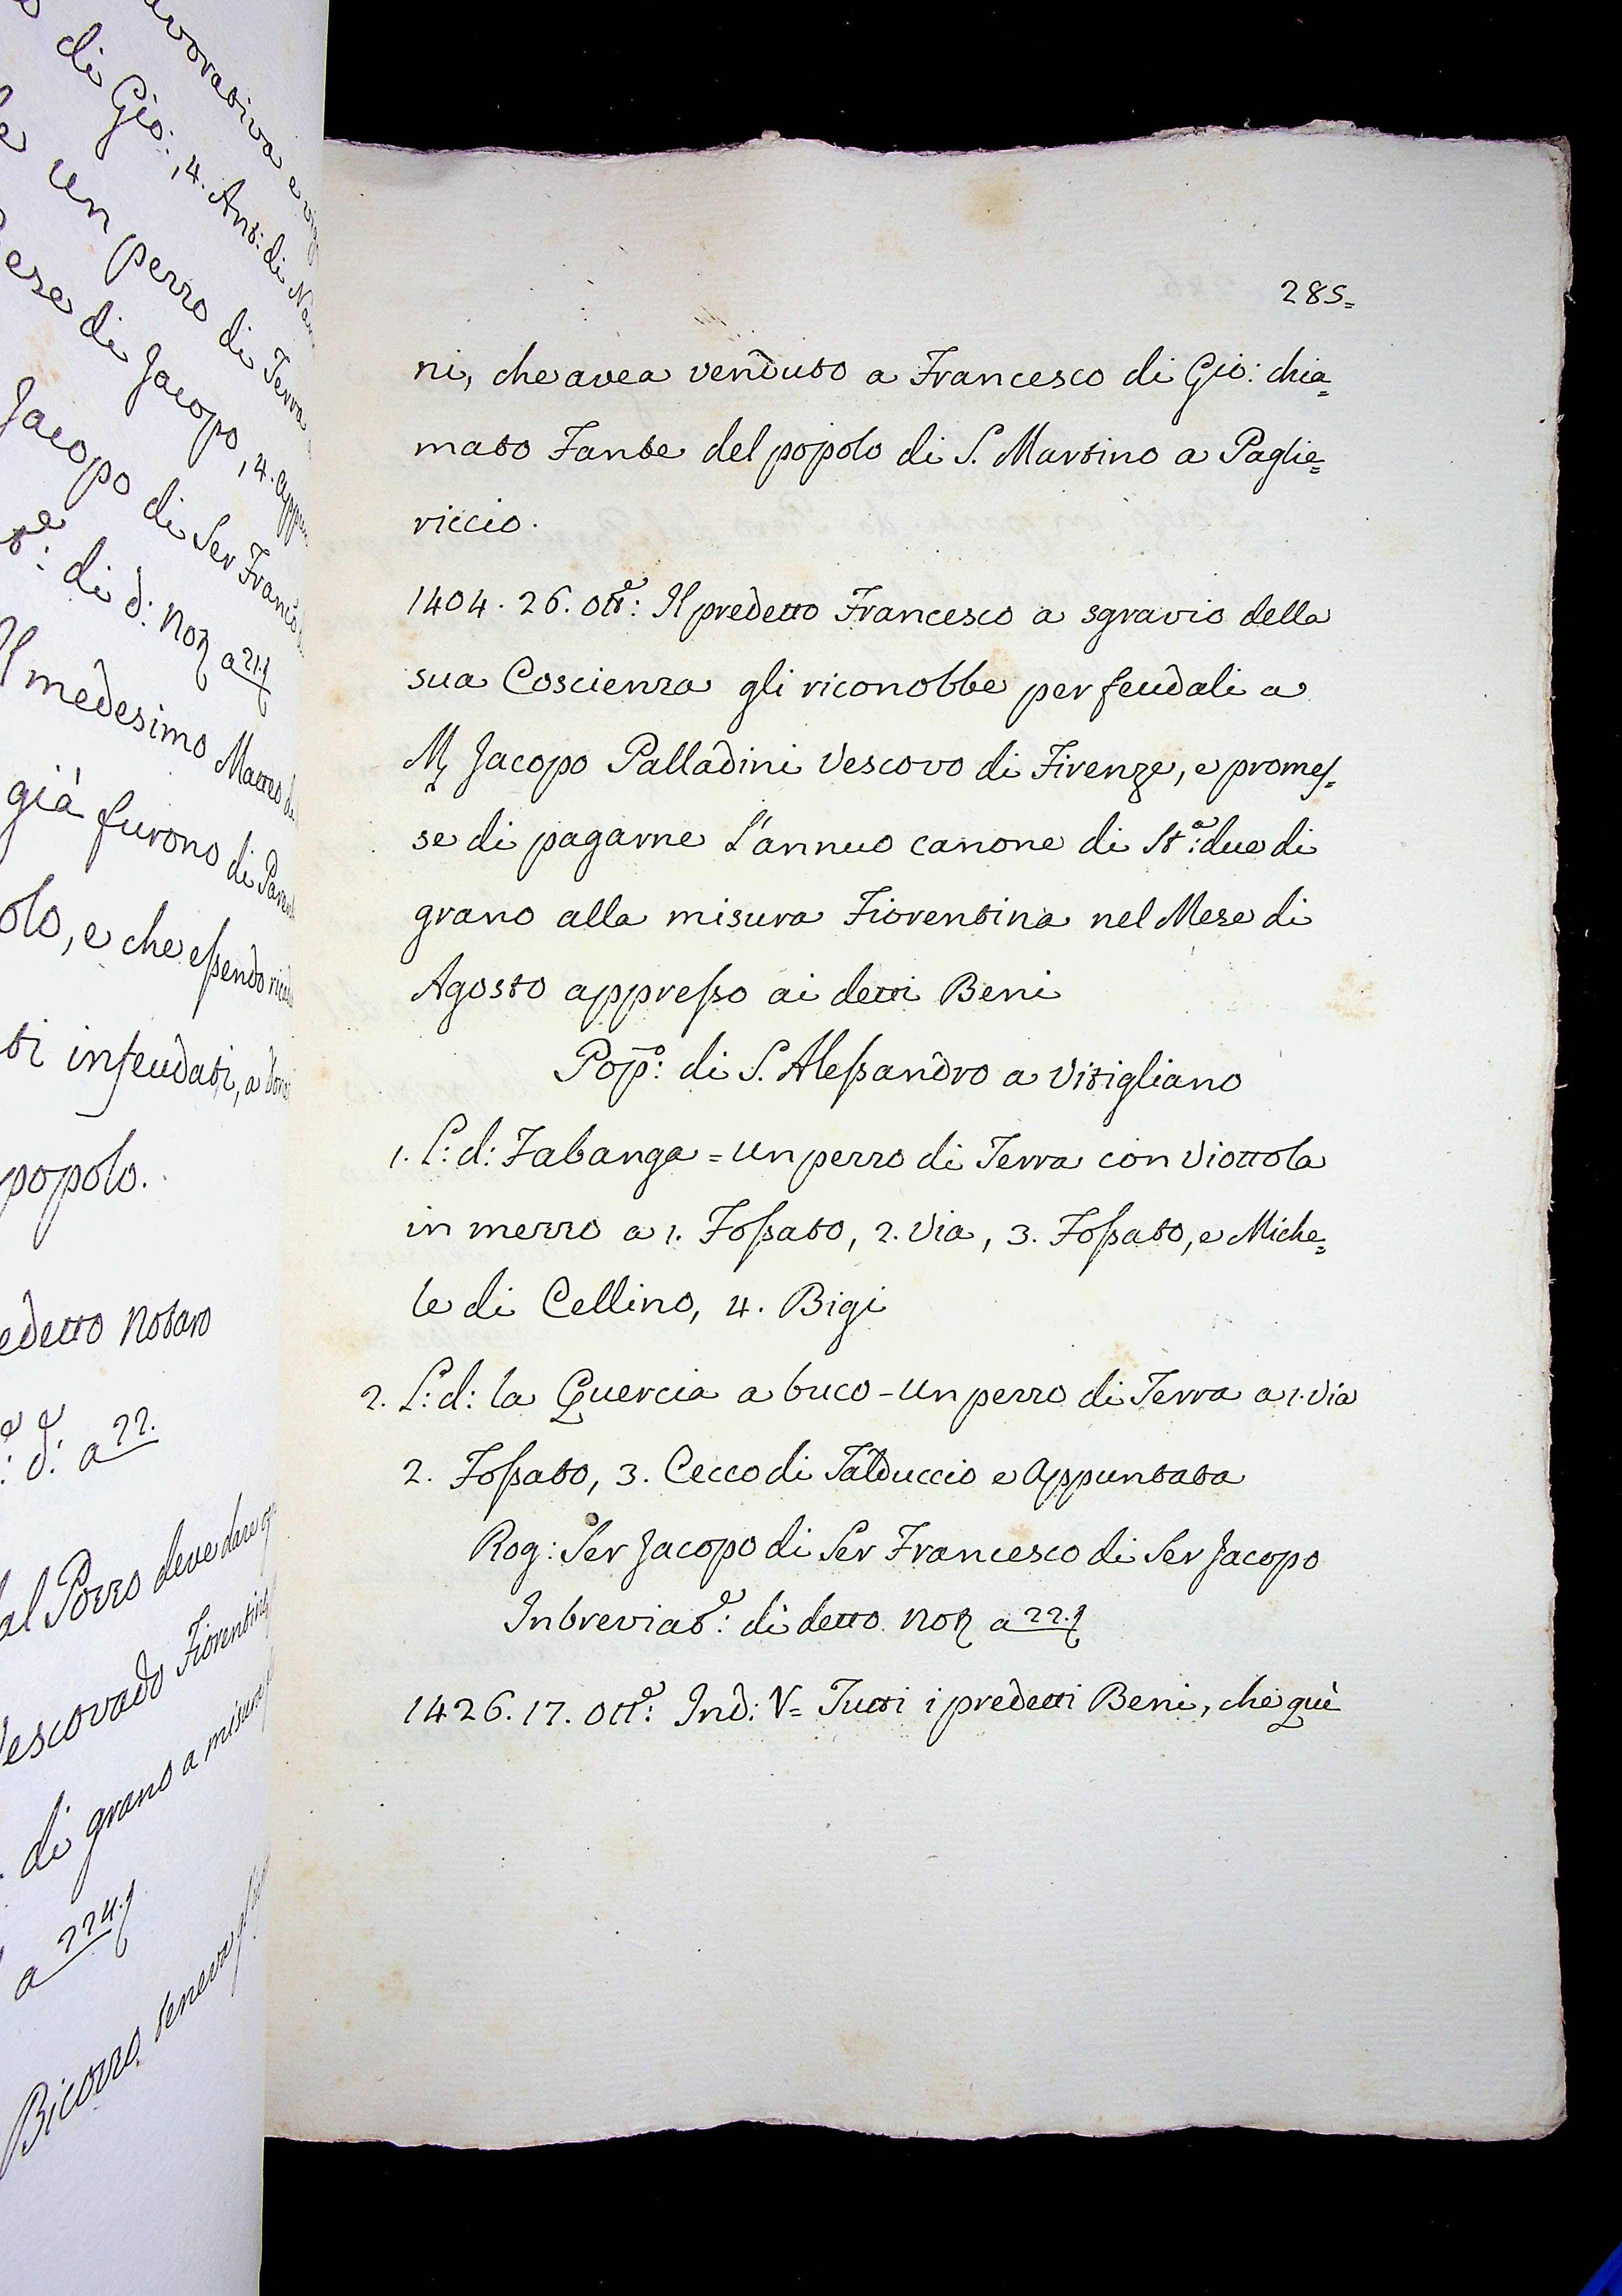 avorativa e
di Gio:, 4. Ant: di
un pezzo di Terra
ese di Jacopo, 4. app
Jacopo di Ser Franc
di d: Noꝫ a 21.
Il medesimo Matteo di
già furono di
olo, e che essendo
ti infeudati, a
popolo.
edetto Notaro
: d: a 22.
al Pozzo deve dare
Vescovado Fiorentino
di grano a misura
a 224.
Bicozzo teneva
285=
ni, che avea venduto a Francesco di Gio: chia=
mato Fante del popolo di S. Martino a Paglie=
riccio.
1404. 26. Ott.e: Il predetto Francesco a sgravio della
sua Coscienza gli riconobbe per feudali a
M. Jacopo Palladini Vescovo di Firenze, e promes=
se di pagarne l'annuo canone di St.a: due di
grano alla misura Fiorentina nel Mese di
Agosto appresso ai detti Beni
Pop.o: di S. Alessandro a Vitigliano
1. L: d: Fabanga = Un pezzo di Terra con Viottola
in mezzo a 1. Fossato, 2. Via, 3. Fossato, e Miche=
le di Cellino, 4. Bigi
2. L: d: la Quercia a buco - Un pezzo di Terra a 1. Via
2. Fossato, 3. Cecco di Talduccio e Appuntata
Rog: Ser Jacopo di Ser Francesco di Ser Jacopo
Inbreviat.e: di detto Noꝫ a 22.
1426. 17. Ott.e: Ind: V= Tutti i predetti Beni, che quì